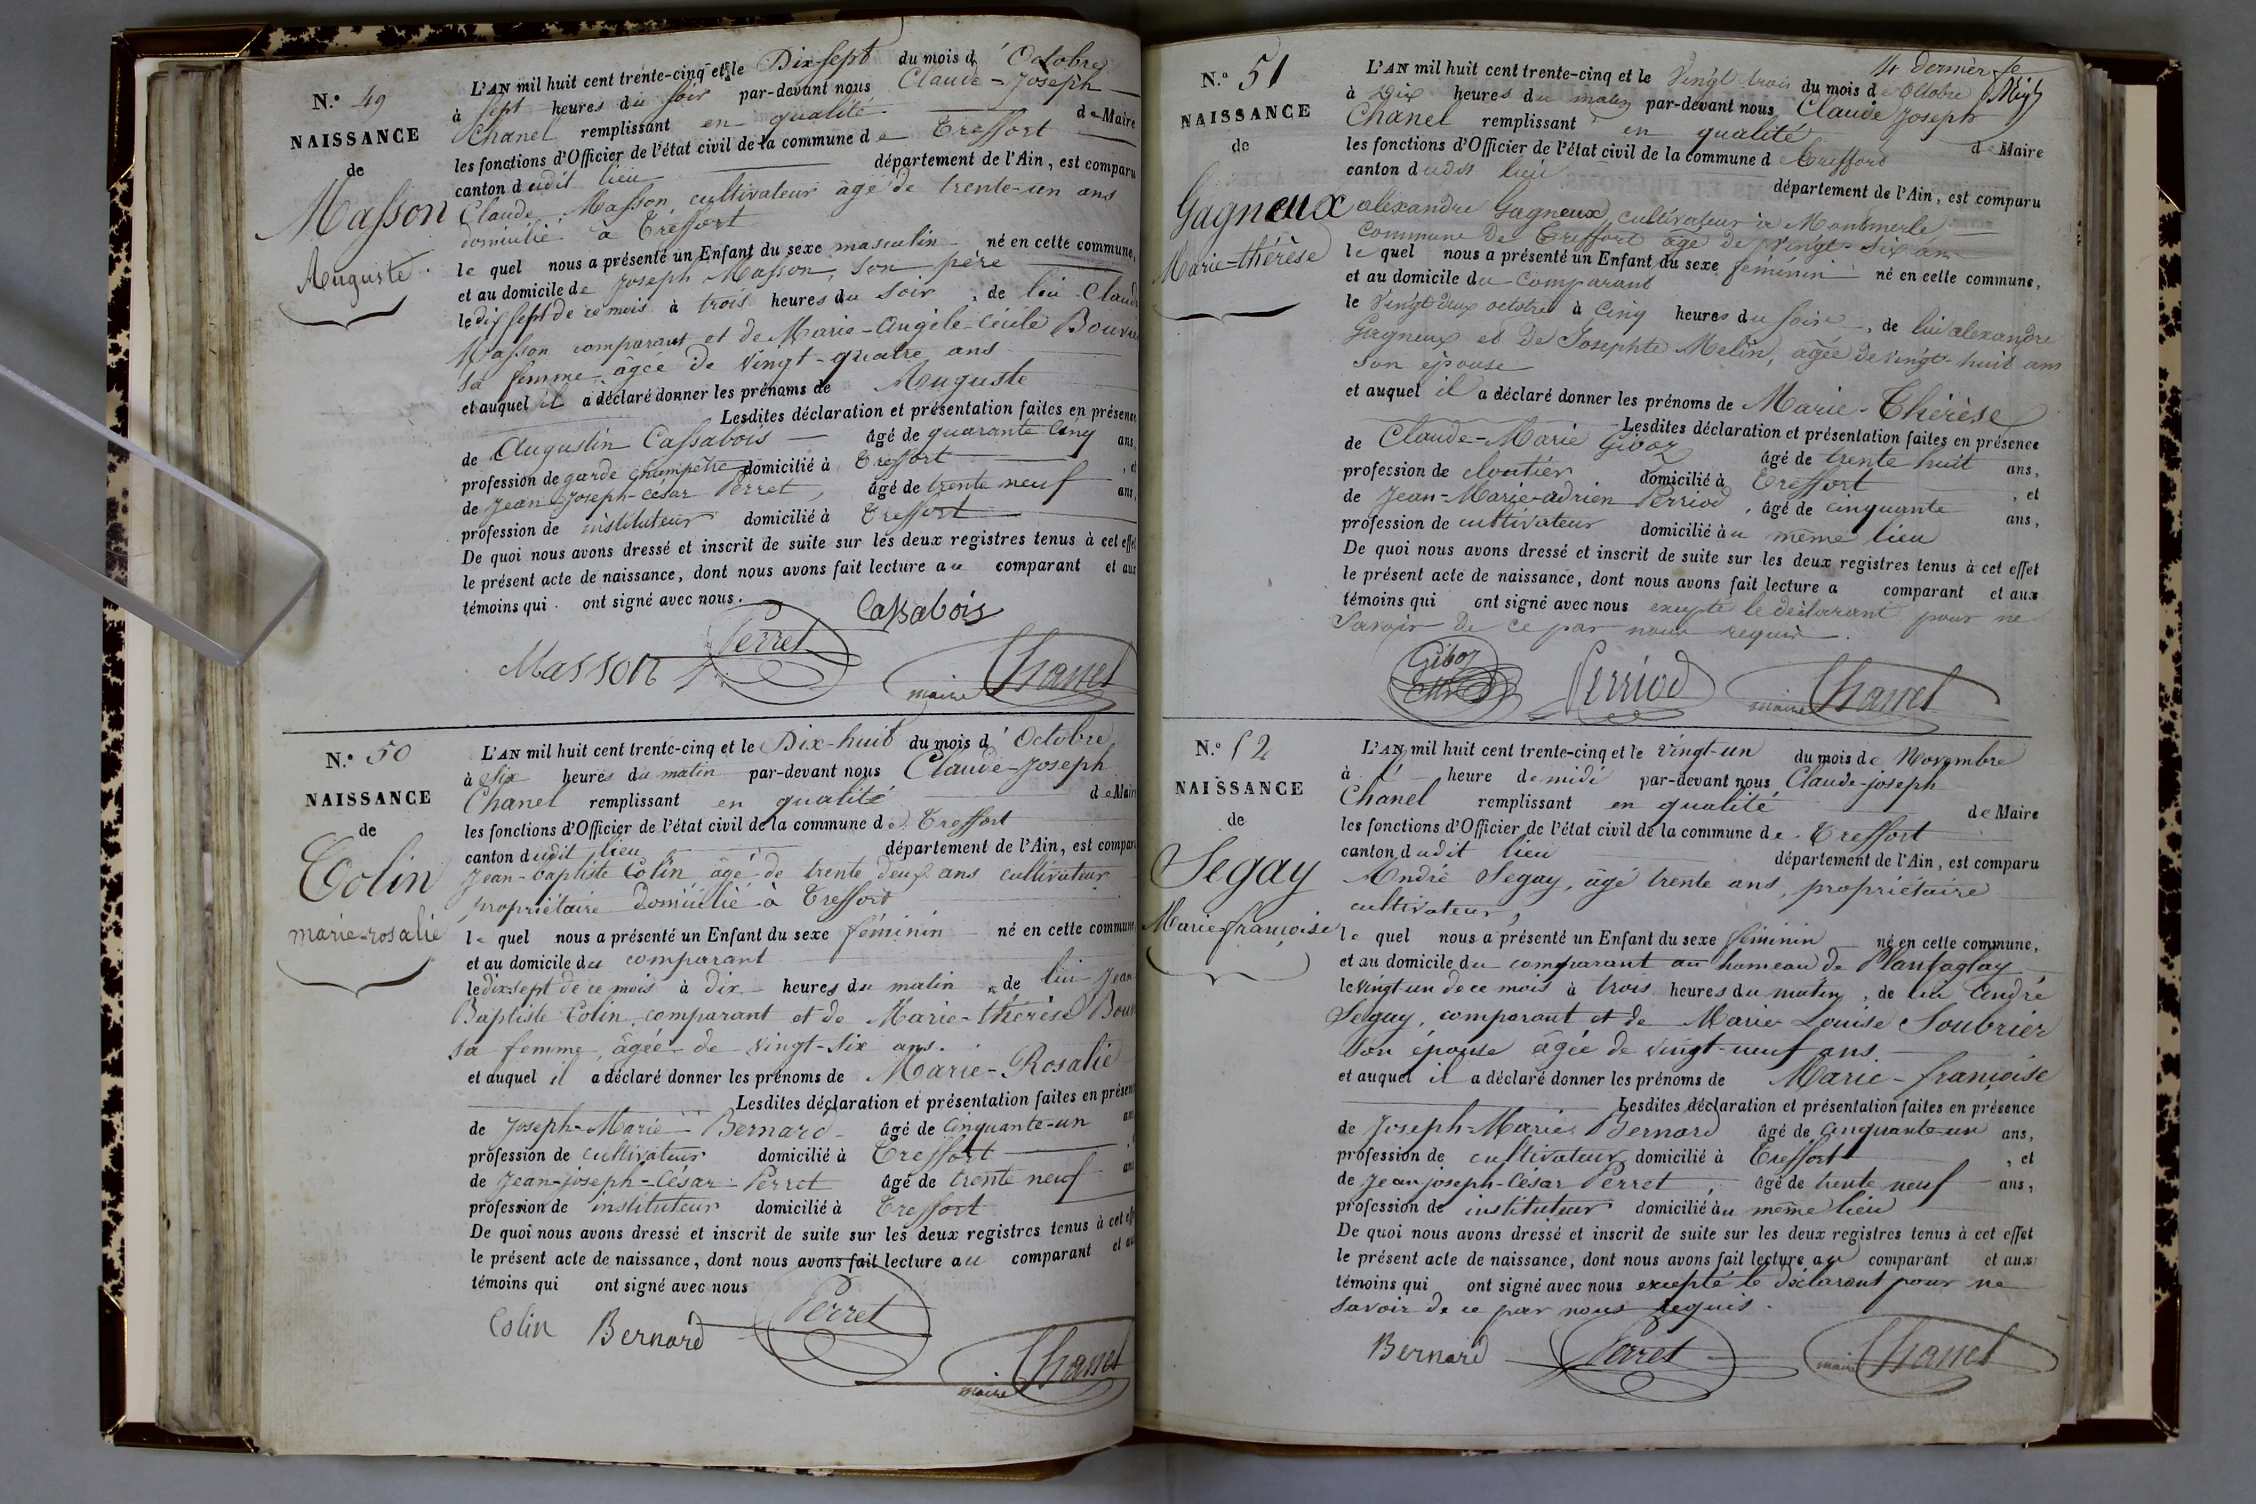 N.° 49
NAISSANCE
de
Masson
Auguste
L'AN mil huit cent trente-cinq et le Dix-sept du mois d'Octobre
à sept heures du soir par-devant nous Claude-Joseph
Chanel remplissant en qualité de Maire
les fonctions d'Officier de l'état civil de la commune de Treffort
canton dudit lieu département de l'Ain, est comparu
Claude Masson, cultivateur âgé de trente-un ans
domicilié à Treffort
lequel nous a présenté un Enfant du sexe masculin né en cette commune,
et au domicile de Joseph Masson, son père
le dix sept de ce mois à trois heures du soir, de lui Claude
Masson comparant et de Marie-Angèle-Cécile
sa femme, âgée de vingt-quatre ans
et auquel il a déclaré donner les prénoms de Auguste
Lesdites déclaration et présentation faites en présence
de Augustin Cassabois âgé de quarante cinq ans,
profession de garde champêtre domicilié à Treffort, et
de Jean-Joseph-César Perret, âgé de trente neuf ans,
profession de instituteur domicilié à Treffort
De quoi nous avons dressé et inscrit de suite sur les deux registres tenus à cet effet
le présent acte de naissance, dont nous avons fait lecture au comparant et aux
témoins qui ont signé avec nous.
Cassabois
Perret
Masson
maire Chanel
N.° 50
NAISSANCE
de
Colin
marie-rosalie
L'AN mil huit cent trente-cinq et le Dix-huit du mois d'Octobre
à Six heures du matin par-devant nous Claude-Joseph
Chanel remplissant en qualité de Maire
les fonctions d'Officier de l'état civil de la commune de Treffort
canton dudit lieu département de l'Ain, est comparu
Jean-baptiste Colin âgé de trente deux ans cultivateur
propriétaire domicilié à Treffort
lequel nous a présenté un Enfant du sexe féminin né en cette commune,
et au domicile du comparant
le dix-sept de ce mois à dix heures du matin, de lui Jean
Baptiste Colin comparant et de Marie-thérèse
sa femme, âgée de vingt-six ans.
et auquel il a déclaré donner les prénoms de Marie-Rosalie
Lesdites déclaration et présentation faites en présence
de Joseph-Marie Bernard âgé de Cinquante-un ans
profession de cultivateur domicilié à Treffort
de Jean-joseph-César Perret âgé de trente neuf ans
profession de instituteur domicilié à Treffort
De quoi nous avons dressé et inscrit de suite sur les deux registres tenus à cet effet
le présent acte de naissance, dont nous avons fait lecture au comparant et aux
témoins qui ont signé avec nous
Perret
Colin Bernard
maire Chanel
4 dernier
N.° 51
NAISSANCE
de
Gagneux
Marie-thérèse
L'AN mil huit cent trente-cinq et le Vingt trois du mois de Octobre
à Dix heures du matin par-devant nous Claude Joseph
Chanel remplissant en qualité de Maire
les fonctions d'Officier de l'état civil de la commune de Treffort
canton dudit lieu département de l'Ain, est comparu
alexandre Gagneux cultivateur à Montmerle
Commune de Treffort âgé de Vingt-six ans
lequel nous a présenté un Enfant du sexe féminin né en cette commune,
et au domicile du Comparant
le Vingt deux octobre à Cinq heures du soir, de lui alexandre
Gagneux et de Josephte Melin, âgée de vingt-huit ans
son épouse
et auquel il a déclaré donner les prénoms de Marie-Thérèse
Lesdites déclaration et présentation faites en présence
de Claude-Marie Giboz âgé de trente huit ans,
profession de cloutier domicilié à Treffort, et
de Jean-Marie-adrien Perriod, âgé de cinquante ans,
profession de cultivateur domicilié au même lieu
De quoi nous avons dressé et inscrit de suite sur les deux registres tenus à cet effet
le présent acte de naissance, dont nous avons fait lecture a comparant et aux
témoins qui ont signé avec nous excepté le déclarant pour ne
Savoir de ce par nous requis.
Giboz Perriod maire Chanel
N.° 52
NAISSANCE
de
Segay
Marie-françoise
L'AN mil huit cent trente-cinq et le vingt-un du mois de Novembre
à heure de midi par-devant nous Claude-joseph
Chanel remplissant en qualité de Maire
les fonctions d'Officier de l'état civil de la commune de Treffort
canton dudit lieu département de l'Ain, est comparu
André Segay, âgé trente ans, propriétaire
cultivateur,
lequel nous a présenté un Enfant du sexe féminin né en cette commune,
et au domicile du comparant au hameau de Plantaglay
le vingt-un de ce mois à trois heures du matin, de lui André
Segay, comparant et de Marie Louise Soubrier
son épouse âgée de vingt-neuf ans.
et auquel il a déclaré donner les prénoms de Marie-françoise
Lesdites déclaration et présentation faites en présence
de Joseph-Marie Bernard âgé de cinquante-un ans,
profession de cultivateur domicilié à Treffort, et
de Jean joseph-César Perret, âgé de trente neuf ans,
profession de instituteur domicilié au même lieu
De quoi nous avons dressé et inscrit de suite sur les deux registres tenus à cet effet
le présent acte de naissance, dont nous avons fait lecture au comparant et aux
témoins qui ont signé avec nous excepté le déclarant pour ne
savoir de ce par nous requis.
Bernard Perret maire Chanel